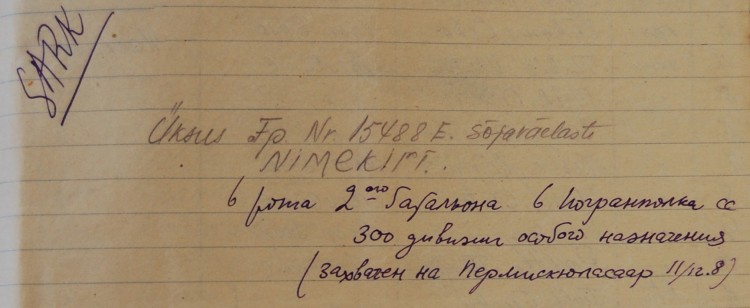 SARK
Üksus Fp. Nr. 15488 E. Sõjaväelaste
NIMEKIRI.
6 рота 2ого батальона 6 Погранполка СС
300 дивизии особого назначения
(Захвачен на Пермискюласаар